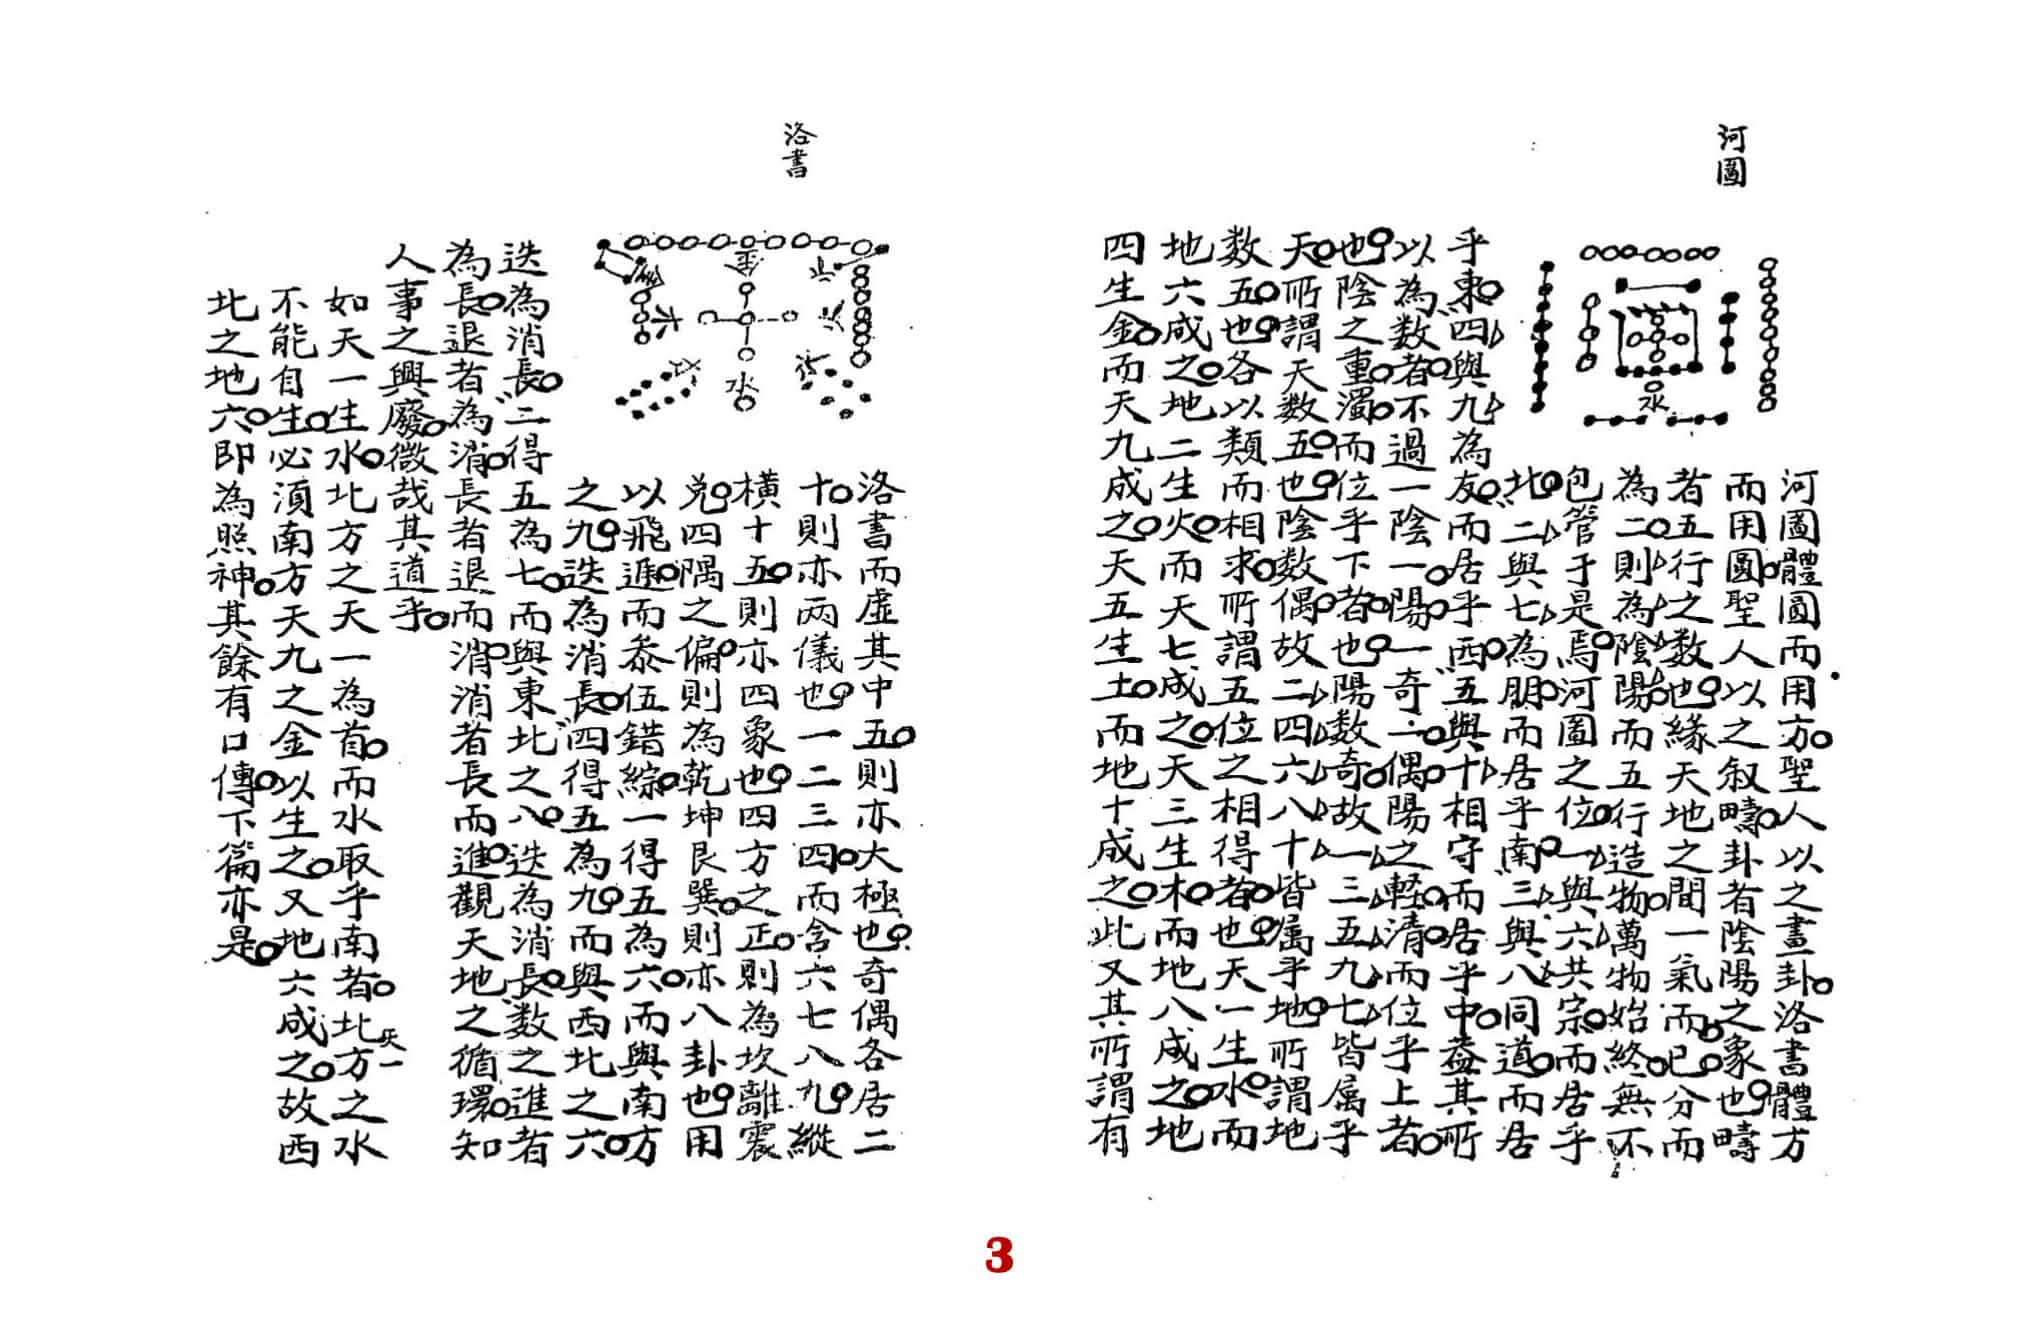 河圖
河圖體圓而用方聖人以之畫卦洛書體方
而用圓聖人以之叙疇卦者陰陽之象也疇
者五行之数也緣天地之間一氣而已分而
為二則為陰陽而五行造物萬物始終無不
包管于是焉河圖之位一與六共宗而居乎
北二與七為朋而居乎南三與八同道而居
乎東四與九為友而居乎西五與十相守而居乎中蓋其所
以為数者不過一陰一陽一奇一偶陽之軽清而位乎上者
也陰之重濁而位乎下者也陽数奇故一三五九七皆属乎
天所謂天数五也陰数偶故二四六八十皆属乎地所謂地
数五也各以類而相求所謂五位之相得者也天一生水而
地六成之地二生火而天七成之天三生木而地八成之地
四生金而天九成之天五生土而地十成之此又其所謂有
水
洛書
金
火
木
水
洛書而虛其中五則亦大極也奇偶各居二
十則亦两儀也一二三四而含六七八九縱
橫十五則亦四象也四方之正則為坎離震
兌四隅之偏則為乾坤艮巽則亦八卦也用
以飛遁而叅伍錯綜一得五為六而與南方
之九迭為消長四得五為九而與西北之六
迭為消長二得五為七而與東北之八迭為消長数之進者
為長退者為消長者退而消消者長而進觀天地之循環知
人事之興廢微哉其道乎
如天一生水北方之天一為首而水取乎南者北方之水
天一
不能自生必湏南方天九之金以生之又地六成之故西
北之地六即為照神其餘有口傳下篇亦是
3